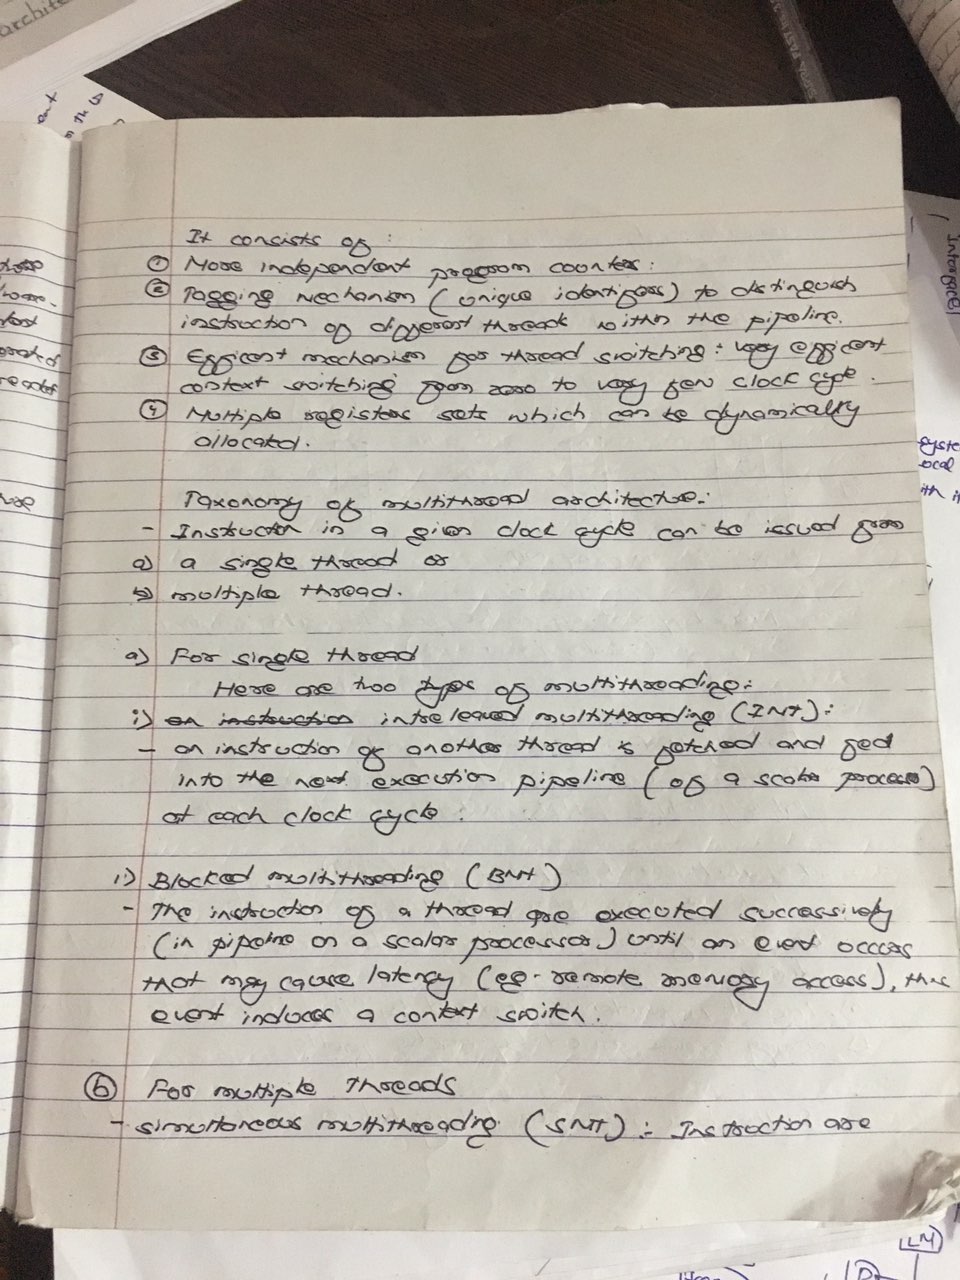 It consists of :
① More independent program counter.
② Tagging Mechanism (unique identifiers) to distinguish
instruction of different threads within the pipeline.
③ Efficient mechanism for thread switching : very efficient
context switching from zero to very few clock cycle.
④ Multiple register sets which can be dynamically
allocated.
Taxonomy of multithread architecture.:
- Instruction in a given clock cycle can be issued from
a) a single thread or
b) multiple thread.
a) For single thread
Here are two types of multithreading:
i) an instruction interleaved multithreading (IMT):
- an instruction of another thread is fetched and fed
into the next execution pipeline (of a scalar processor)
at each clock cycle.
i) Blocked multithreading (BMT)
- The instruction of a thread are executed successively
(in pipeline on a scalar processor) until an event occurs
that may cause latency (eg- remote memory access), this
event induces a context switch.
ⓑ For multiple Threads
- simultaneous multithreading (SMT) :- Instruction are